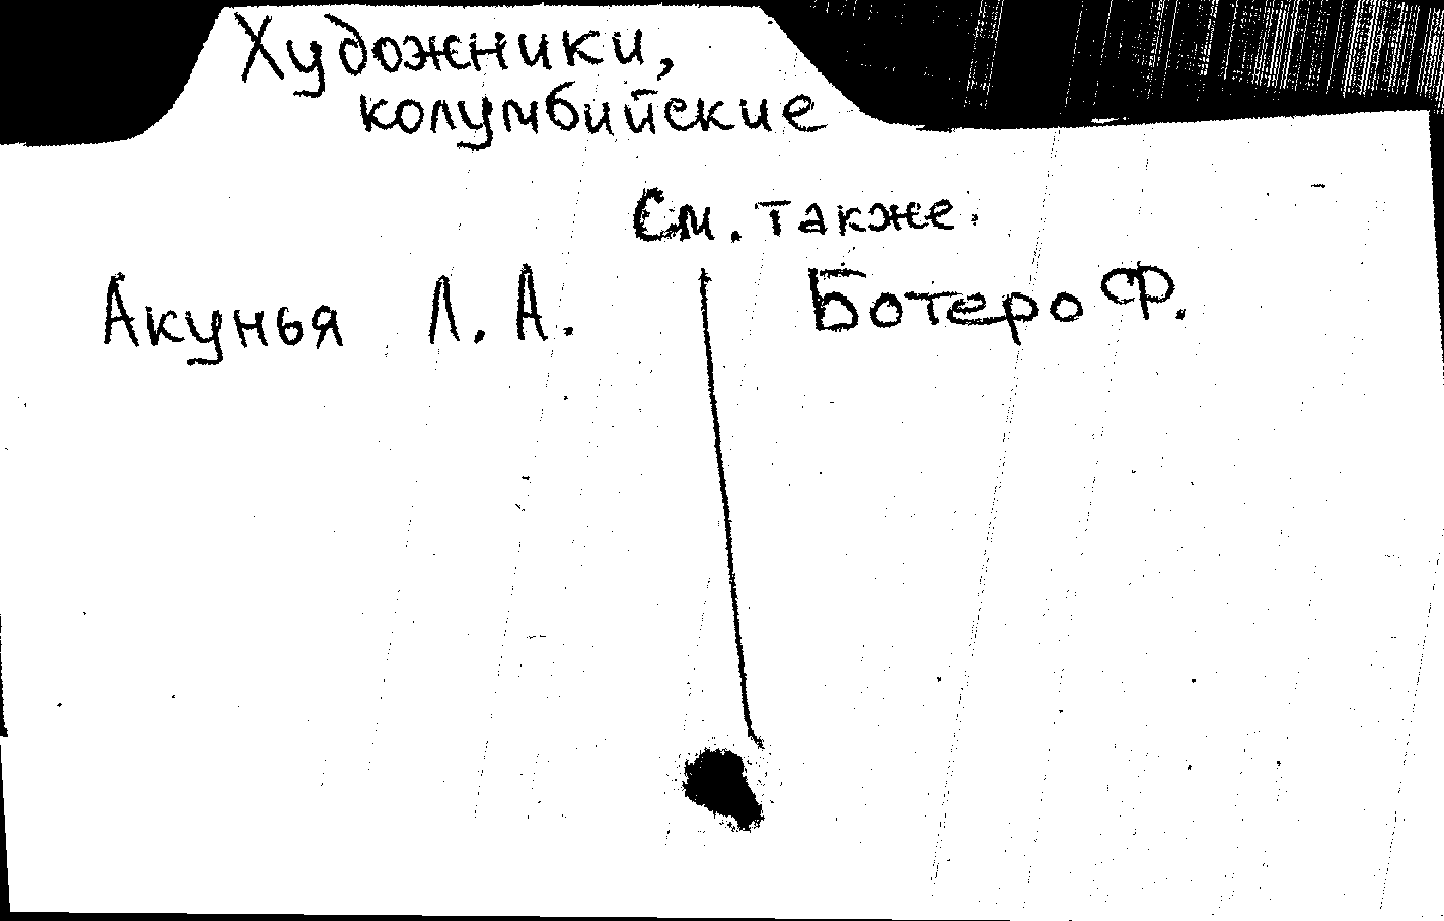 Художники,
колумбийские
См. также.
Акунья Л. А.
Ботеро Ф.